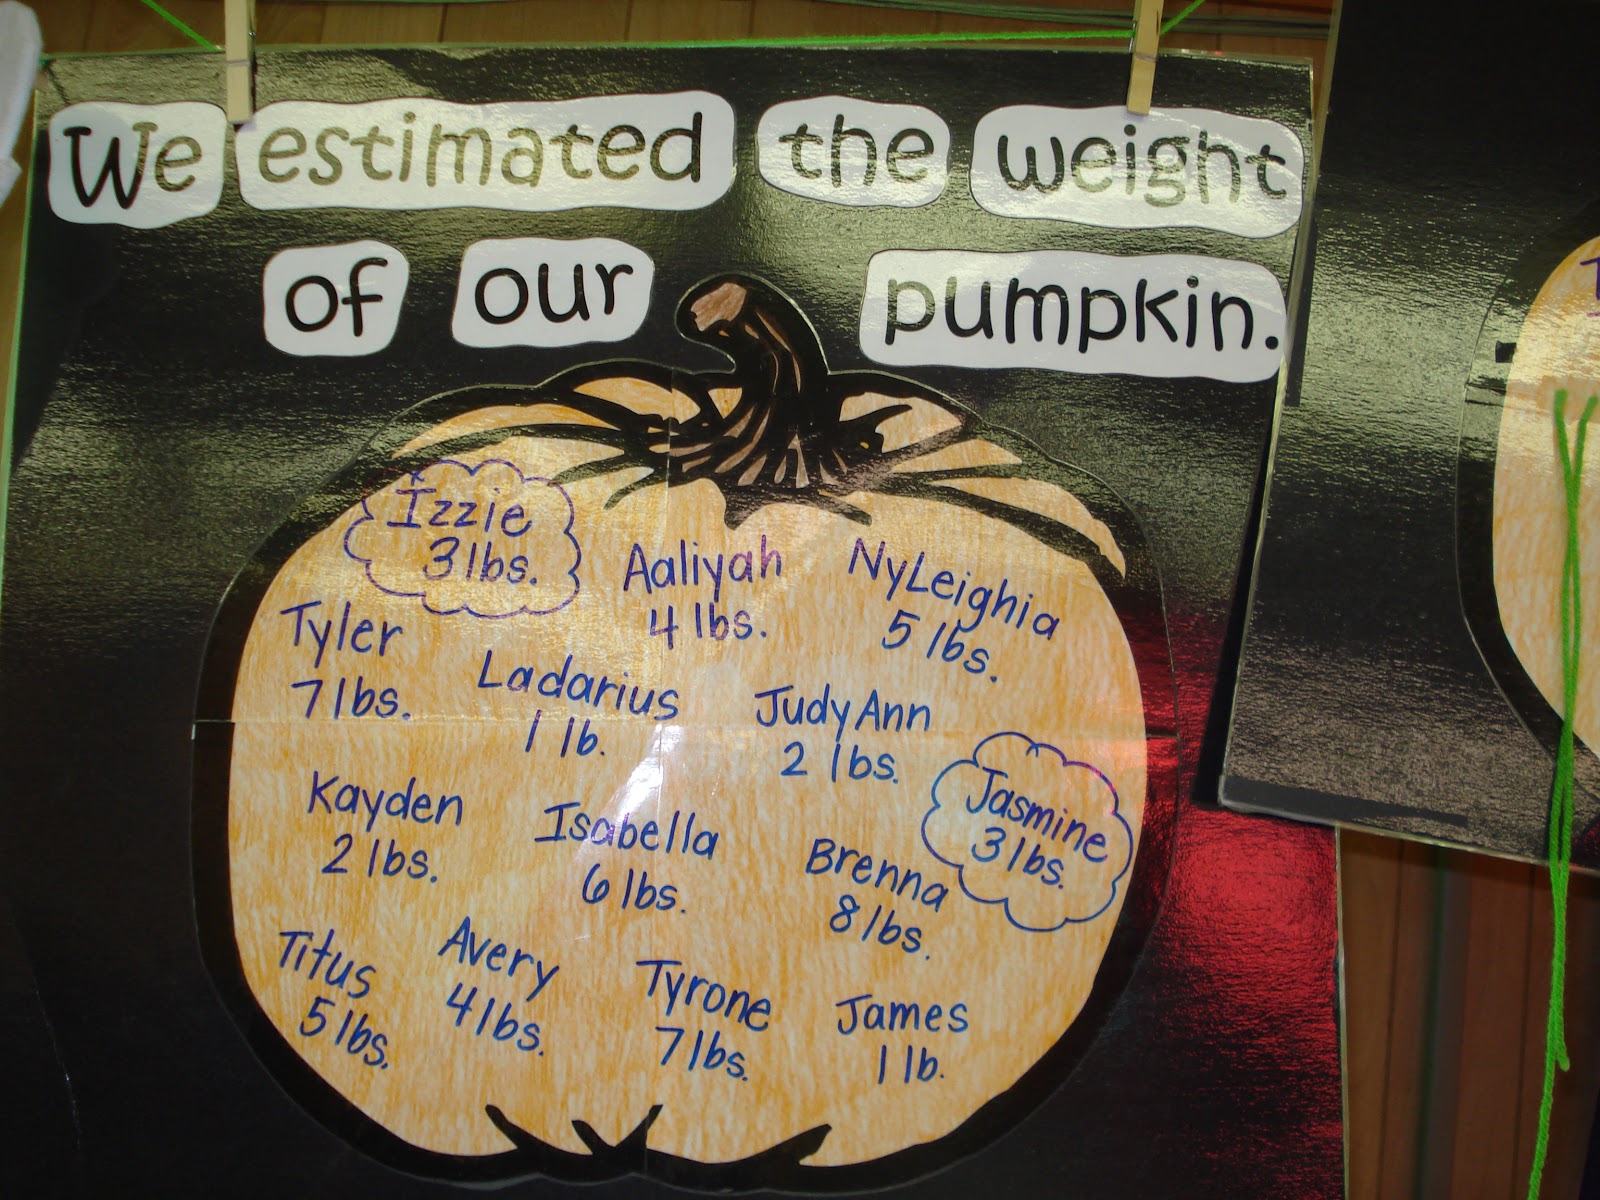 We estimated the weight
of our pumpkin.
Izzie
3 lbs.
Aaliyah
4 lbs.
NyLeighia
5 lbs.
Tyler
7 lbs.
Ladarius
1 lb.
JudyAnn
2 lbs.
Kayden
2 lbs.
Isabella
6 lbs.
Brenna
8 lbs.
Jasmine
3 lbs.
Titus
5 lbs.
Avery
4 lbs.
Tyrone
7 lbs.
James
1 lb.